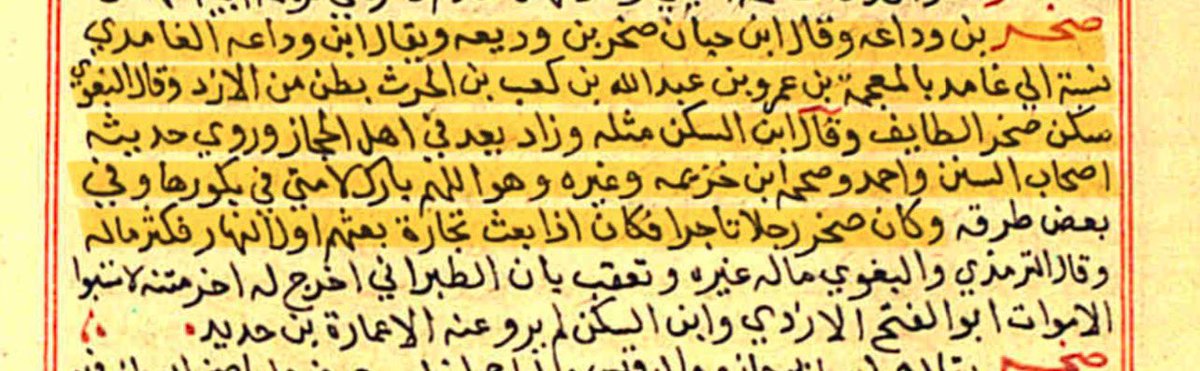 صخر بن وداعه وقال ابن حبان صخر بن وديعه ويقال ابن وداعه الغامدي
نسبة الي غامد بالمعجمة بن عمرو بن عبد الله بن كعب بن الحرث بطن من الازد وقال البغوي
سكن صخر الطايف وقال ابن السكن مثله وزاد يعد في اهل الحجاز وروي حديثه
اصحاب السنن واحمد وصححه ابن خزيمه وغيره وهو اللهم بارك لامتي في بكورها وفي
بعض طرقه وكان صخر رجلا تاجرا فكان اذا بعث تجارة بعثهم اول النهار فكثر ماله
وقال الترمذي والبغوي ماله غيره وتعقب بان الطبراني اخرج له اخر متنه لا تسبوا
الاموات ابو الفتح الازدي وابن السكن لم يرو عنه الا عمارة بن حديد
صخر